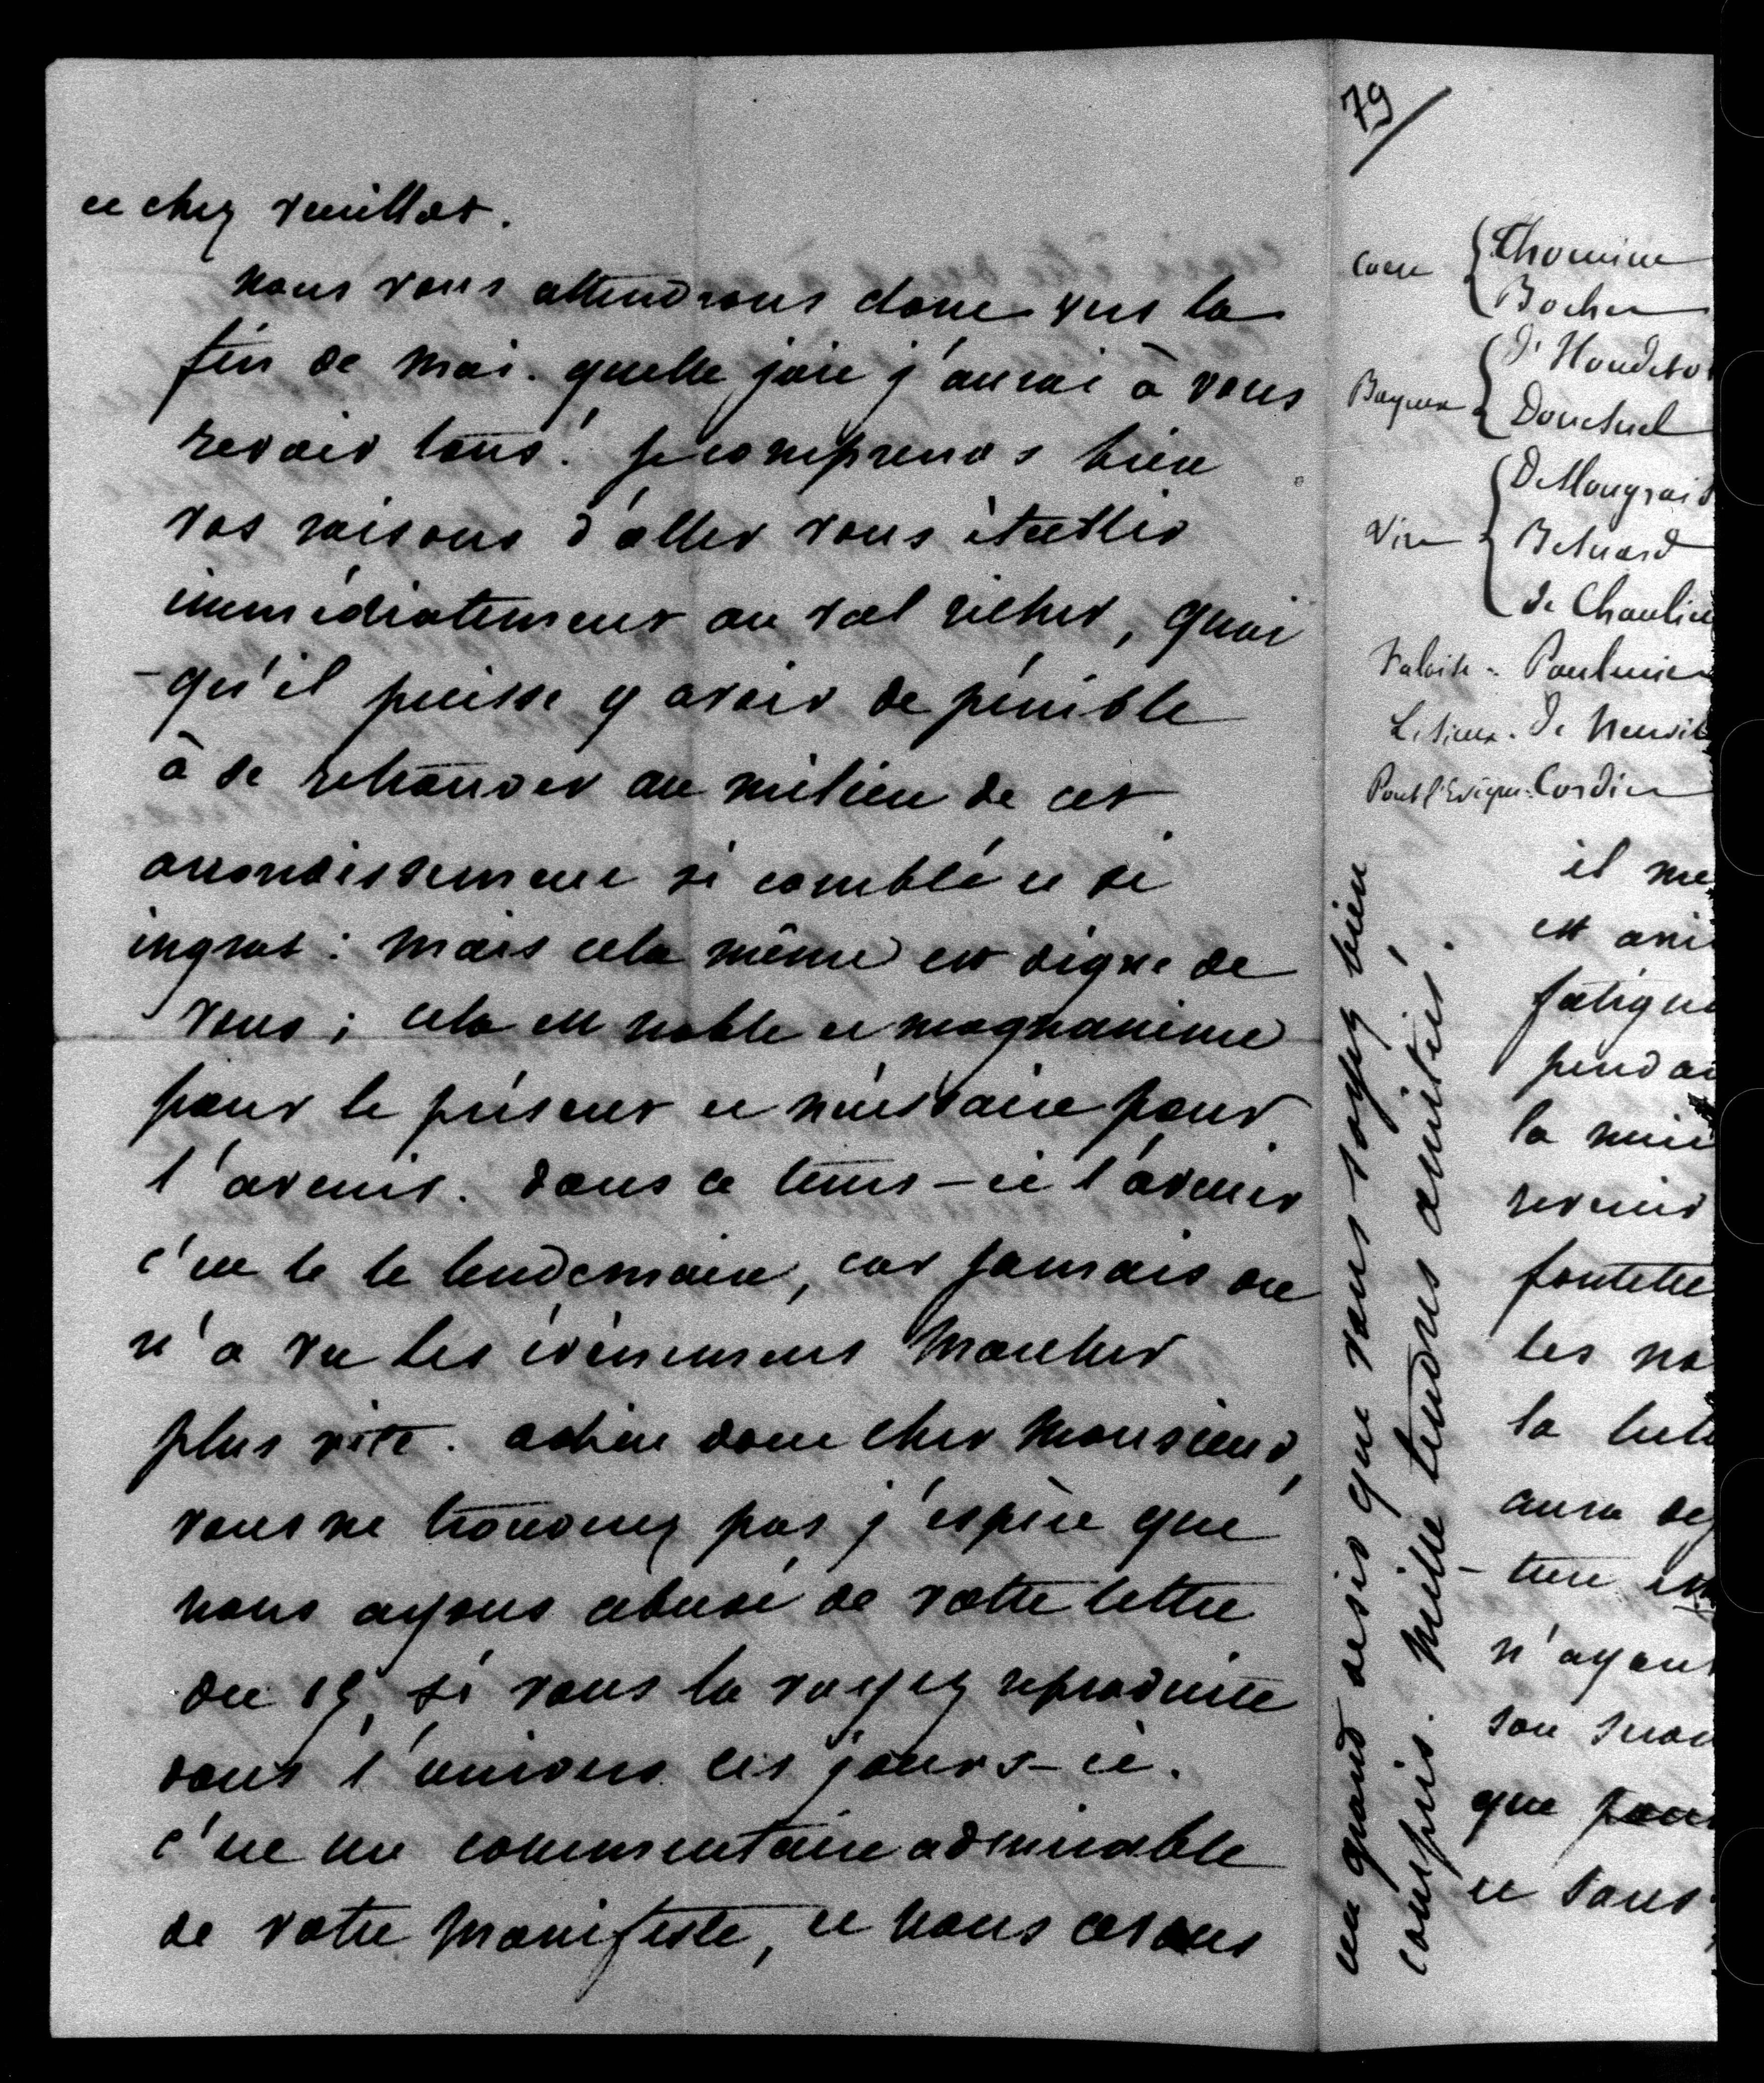 et chez Veuillot.
nous vous attendrons donc vers la
fin de mai. quelle joie j'aurai à vous
revoir tous! je comprends bien
vos raisons d'aller vous établir
immédiatement au val richer, quoi
-qu'il puisse y avoir de pénible
à se retrouver au milieu de cet
arrondissement si comblé et si
ingrat: mais cela même est digne de
vous; cela est noble et magnanime
pour le présent et nécessaire pour
l'avenir. dans ce tems-ci l'avenir
c'est le le lendemain, car jamais on
n'a vu les évènemens marcher
plus vite. adieu donc cher Monsieur,
vous ne trouverez pas j'espère que
nous ayons abusé de votre lettre
du 19, si vous la voyez reproduite
dans l'union ces jours-ci.
c'est un commentaire admirable
de votre Manifeste, et nous avons
un grand désir que vous soyez bien
compris. Mille tendres amitiés.
79
Caen { Thomine
Bocher
Bayeux { d'Houdetot
Douesnel
Vire {
de Chaulieu
Falaise - Paulmier
Lisieux. de Neuvil
Pont l'Evêque. Cordier
il me
est
fatigu
penda
la
revenir
les no
la lutt
aura
n'ayant
son
que
et sans